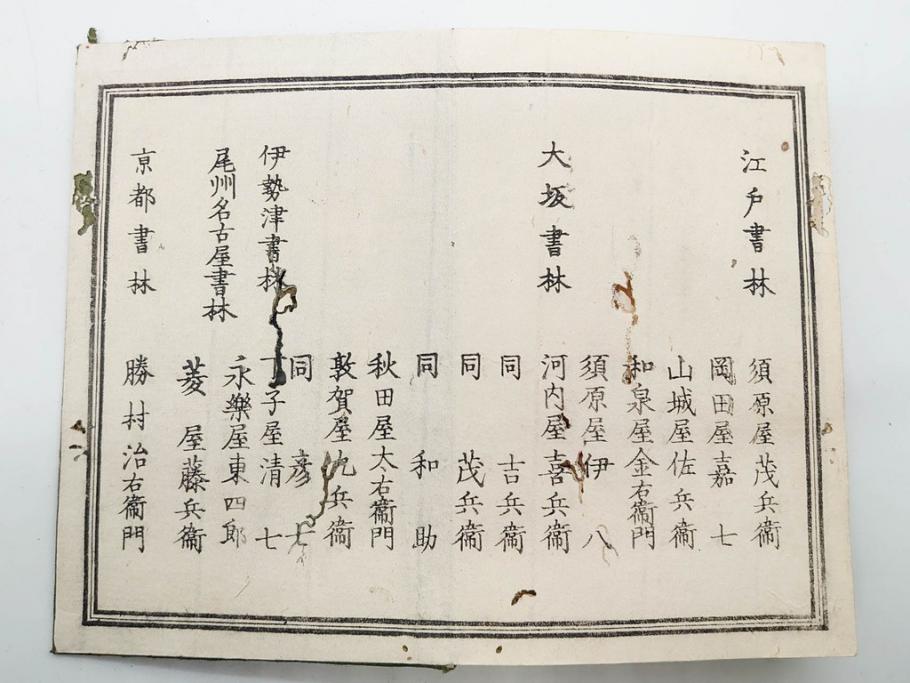 江戸書林
須原屋茂兵衞
岡田屋嘉七
山城屋佐兵衞
和泉屋金右衞門
須原屋伊八
大坂書林
河内屋喜兵衞
同吉兵衞
同茂兵衞
同和助
秋田屋太右衞門
敦賀屋九兵衞
同彦七
伊勢津書林
丁子屋清七
尾州名古屋書林
永樂屋東四郎
菱屋藤兵衞
京都書林
勝村治右衞門